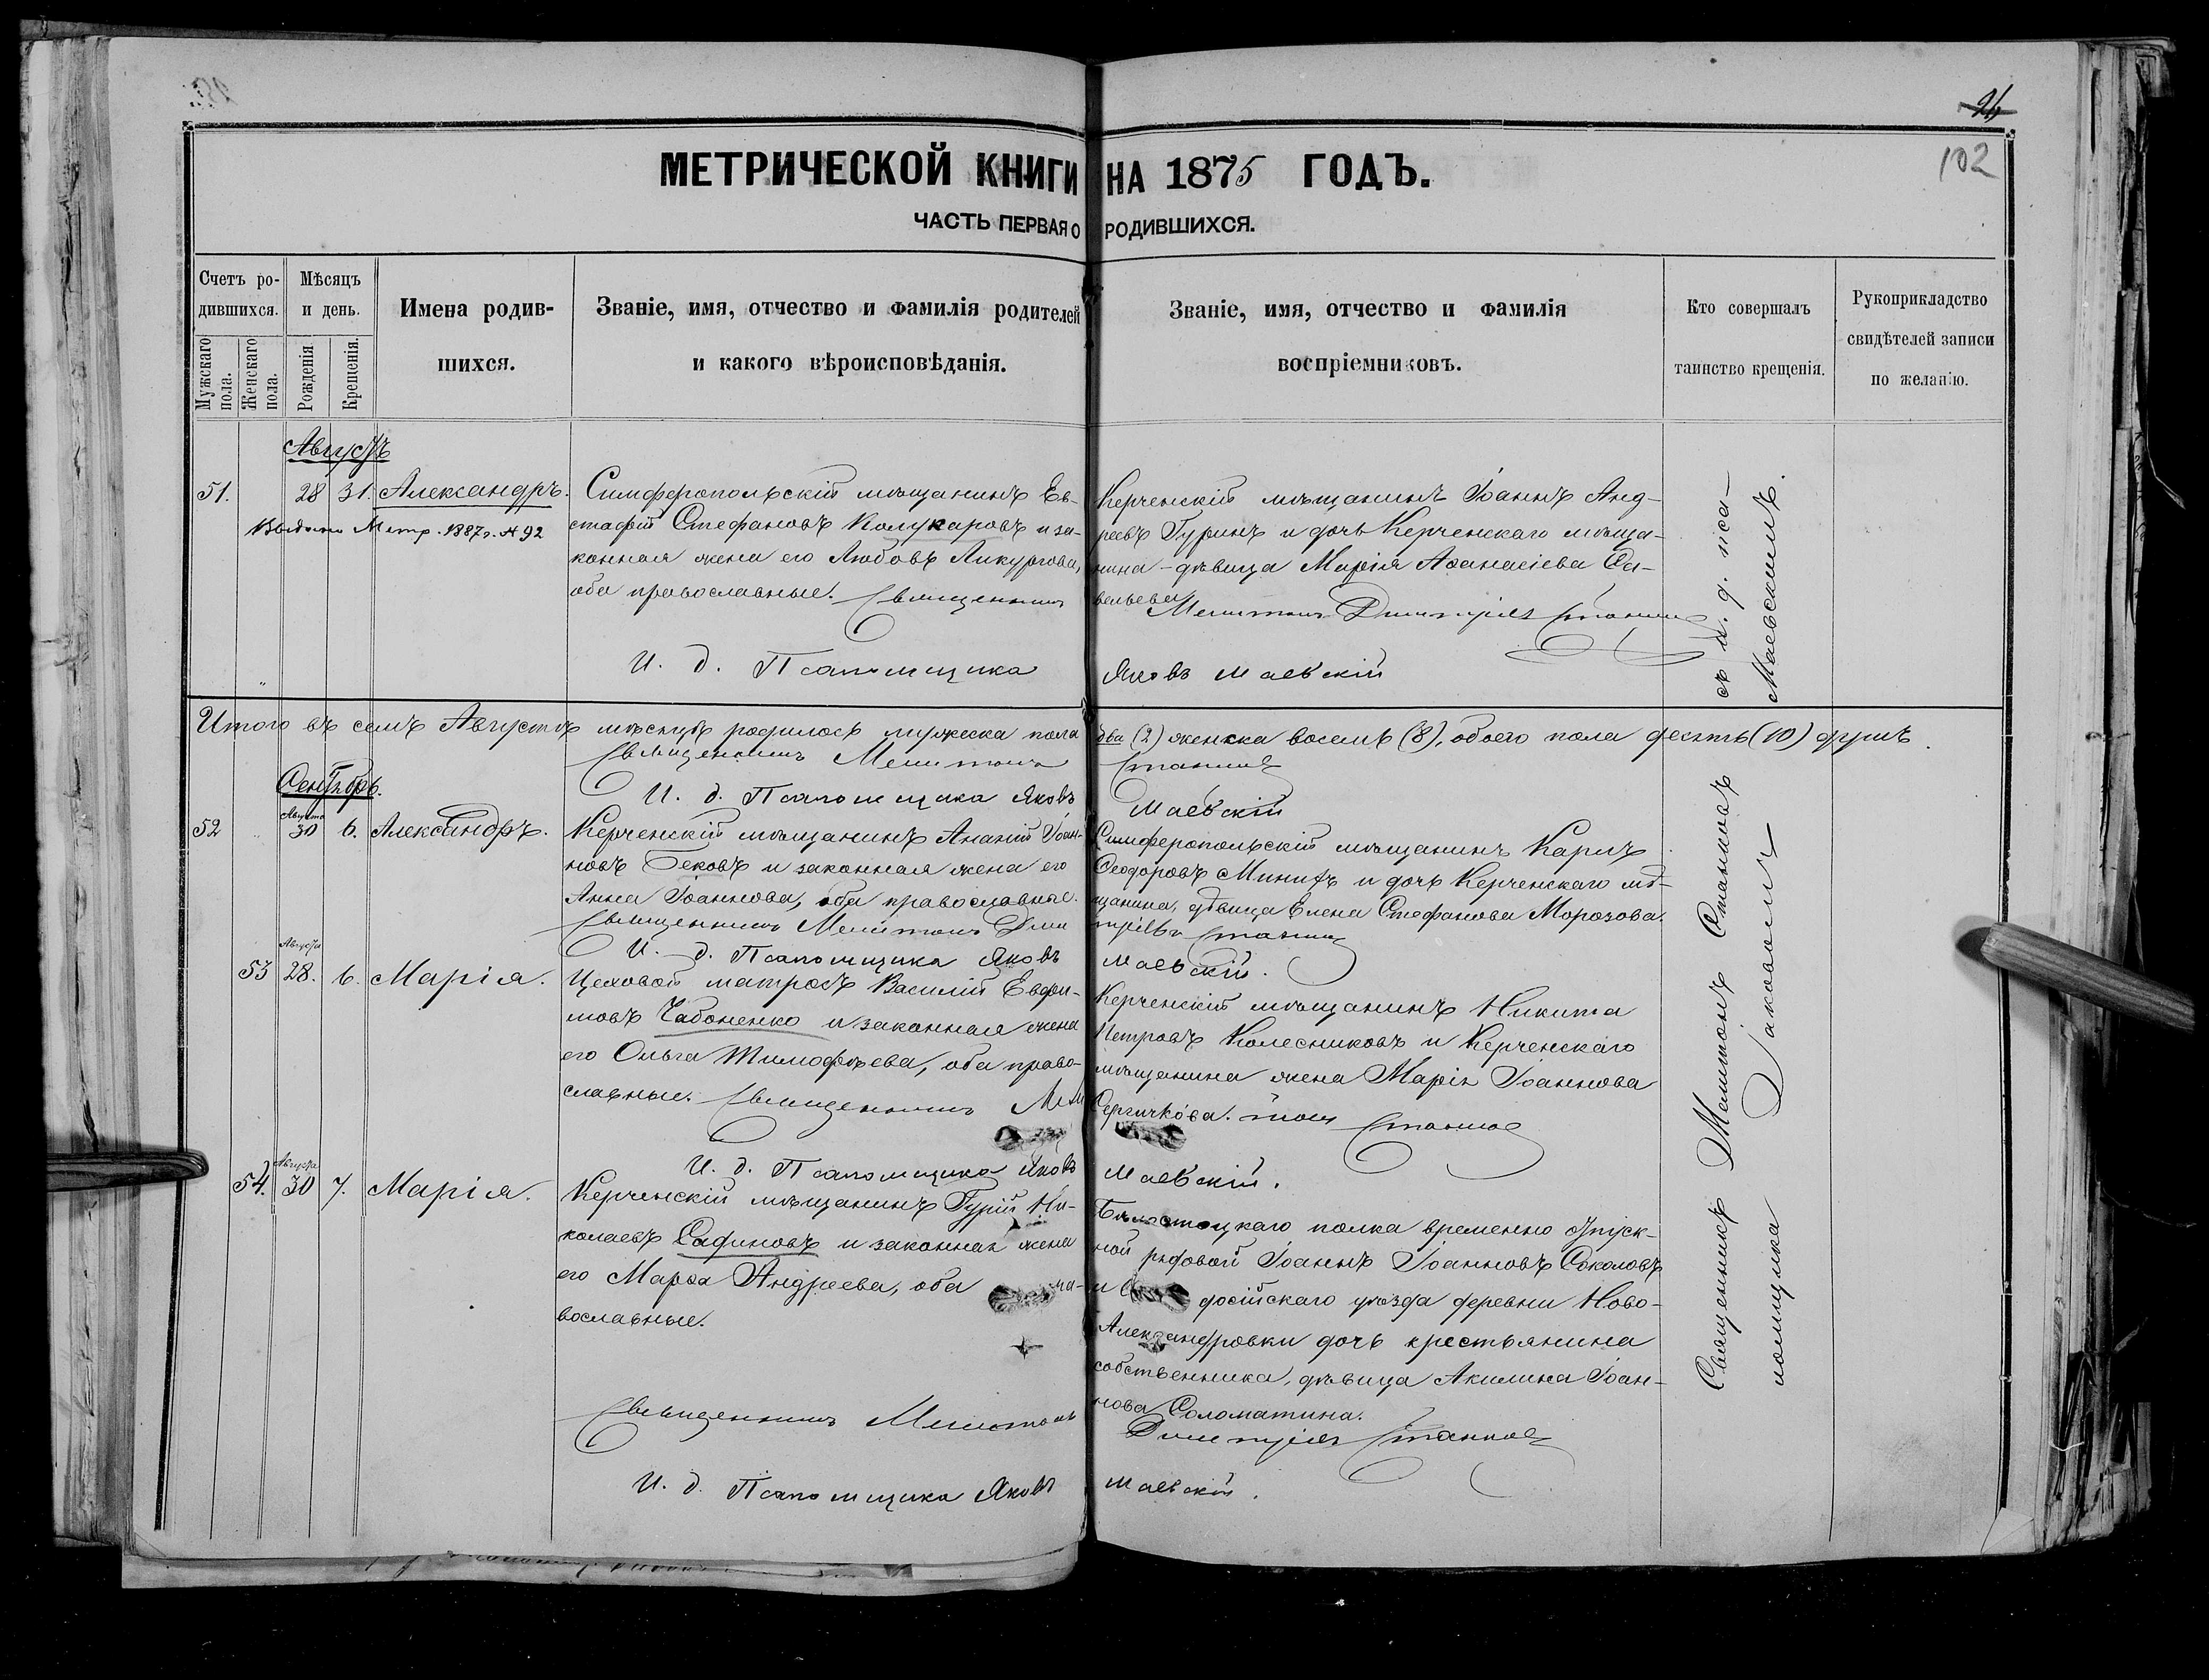 26
102
МЕТРИЧЕСКОЙ КНИГИ НА 1875 ГОДЪ.
ЧАСТЬ ПЕРВАЯ О РОДИВШИХСЯ.
Счетъ ро-
дившихся.
Мужскаго пола.
Женскаго пола.
Мѣсяцъ
и день.
Рожденія
Крещенія.
Имена родив-
шихся.
Званіе, имя, отчество и фамилія родителей
и какого вѣроисповѣданія.
Званіе, имя, отчество и фамилія
воспріемниковъ.
Кто совершалъ
таинство крещенія.
Рукоприкладство
свидѣтелей записи
по желанію.
Августъ
51. 28 31. Александръ.
Выдано Метр. 1887 г. № 92
Симферопольскій мѣщанинъ Ев-
стафій Стефановъ Колукаровъ и за-
конная жена его Любовь Ликургова,
оба православные. Священникъ
И. д. Псаломщика
Керченскій мѣщанинъ Іоаннъ Анд-
реевъ Гуринъ и дочь Керченскаго мѣща-
нина - дѣвица Марія Аѳанасіева Са-
вельева
Мелитонъ Димитріевъ Станковъ
Яковъ Маевскій
съ и. д. пса-
Маевскимъ.
Итого въ семъ Августѣ мѣсяцѣ родилось мужеска пола два (2) женска восемь (8), обоего пола десять (10) душъ.
Священникъ Мелитонъ Станковъ
И. д. Псаломщика Яковъ Маевскій
Сентябрь.
52 Августа 30 6. Александръ.
Керченскій мѣщанинъ Ананій Іоан-
новъ Бековъ и законная жена его
Анна Іоаннова, оба православные.
Священникъ Мелитонъ Дими
И. д. Псаломщика Яковъ
Симферопольскій мѣщанинъ Карпъ
Ѳеодоровъ Минихъ и дочь Керченскаго мѣ-
щанина, дѣвица Елена Стефанова Морозова.
тріевъ Станковъ
Маевскій.
53 Августа 28. 6. Марія.
Цеховой матросъ Василій Евфи-
мовъ Чабоненко и законная жена
его Ольга Тимофѣева, оба право-
славные. Священникъ Мели
И. д. Псаломщика Яковъ
Керченскій мѣщанинъ Никита
Петровъ Колесниковъ и Керченскаго
мѣщанина жена Марія Іоаннова
Сергичкова. тонъ Станковъ
Маевскій.
54. Августа 30 7. Марія.
Керченскій мѣщанинъ Гурій Ни-
колаевъ Сафиновъ и законная жена
его Марѳа Андреева, оба
вославные.
Священникъ Мелитонъ
И. д. Псаломщика Яковъ
Бѣлостоцкаго полка временно отпуск-
ной рядовой Іоаннъ Іоанновъ Соколовъ
и досійскаго уѣзда деревни Ново-
Александровки дочь крестьянина
собственника, дѣвица Акилина Іоан-
нова Соломатина.
Димитріевъ Станковъ
Маевскій.
Священникъ Мелитонъ Станковъ
ломщика Яковомъ